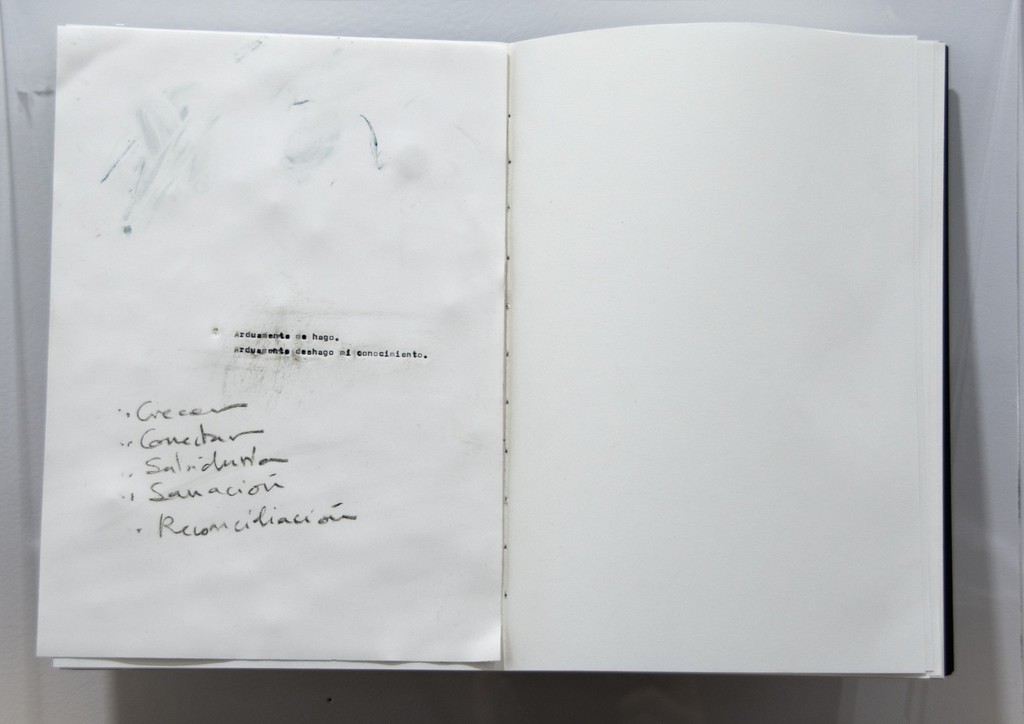 Arduamente me hago.
Arduamente deshago mi conocimiento.
Crecer
Conectar
Sabiduría
Sanación
Reconciliación